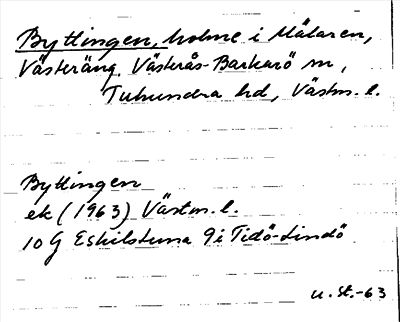 Byttingen, holme i Mälaren,
Västeräng, Västerås-Barkarö sn,
Tuhundra hd, Västm. l.
Byttingen
ek (1963) Västm. l.
10 G Eskilstuna 9 i Tidö-Lindö
u. St.-63